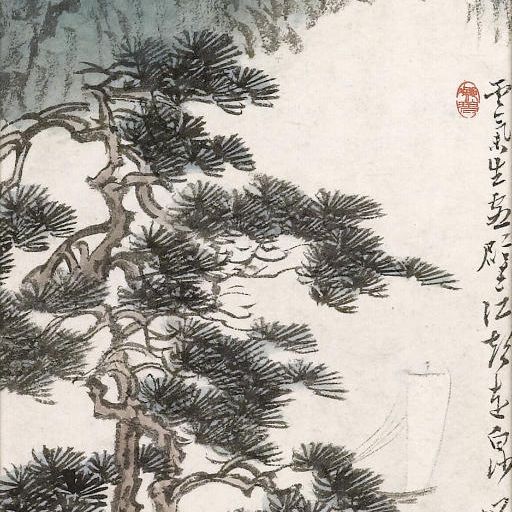 雲氣生虛壁江聲走白沙